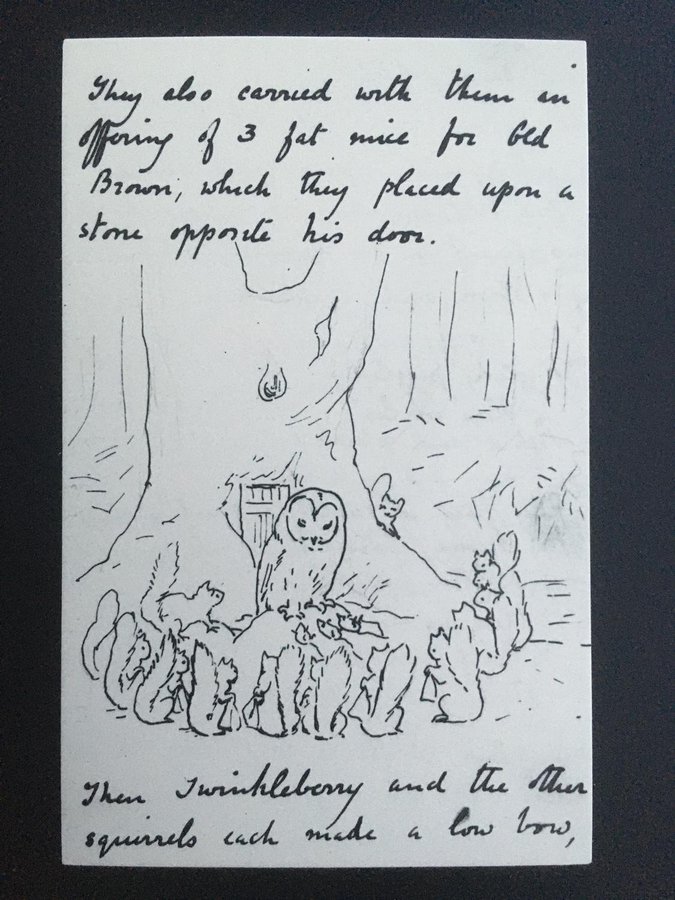 They also carried with them an
offering of 3 fat mice for Old
Brown, which they placed upon a
stone opposite his door.
Then Twinkleberry and the other
squirrels each made a low bow,